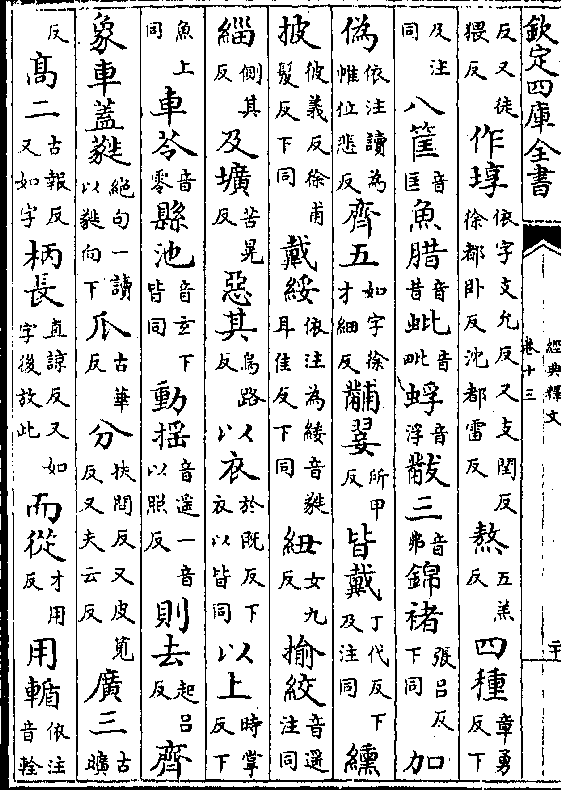 欽定四庫全書
經典釋文
卷十三
二十
反又徒猥反作埻依字支允反又支閏反徐都卧反沈都雷反熬五羔反四種章勇反下
及注同八筐音匡魚腊音昔蚍音毗蜉音浮黻三音弗錦褚張呂反下同加
偽依注讀為帷位悲反齊五如字徐才細反黼翣所甲反皆戴丁代反下及注同纁
披彼義反徐甫髲反下同戴綏依注為緌音蕤耳隹反下同紐女九反揄絞音遥注同
緇側其反及壙苦晃反惡其烏路反以衣於既反下衣以皆同以上時掌反下
魚上同車苓音零縣池音玄下皆同動揺音遥一音以照反則去起呂反齊
象車蓋蕤絕句一讀以蕤向下爪古華反分扶問反又皮莧反又夫云反廣三古曠
反高二古報反又如字柄長直諒反又如字後放此而從才用反用輴依注音輇